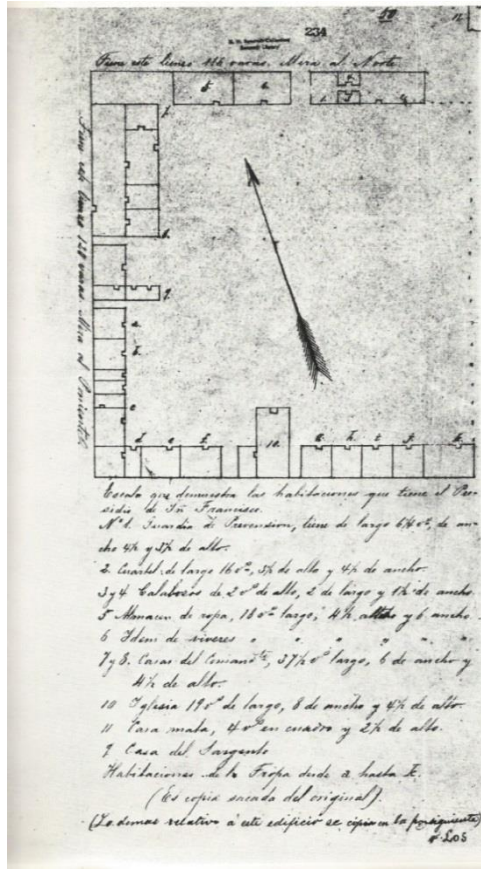 234
50
11
Tiene este lienzo 116 varas. Mira al Norte
5
6
Tiene este lienzo 120 varas. Mira al Poniente
9
a
b
c
d e f
10
g h i j k
Escala que demuestra las habitaciones que tiene el Pre-
sidio de Sn Francisco.
No 1. Guardia de Prevension, tiene de largo de an-
cho 4½ y 3½ de alto.
2. Cuartel de largo 16 vs, 3½ de alto y 4½ de ancho.
3 y 4 Calabozos de 2 vs de alto, 2 de largo y 1½ de ancho
5 Almacen de ropa, 18 vs largo, 4½ alto y 6 ancho
6 Idem de viveres " " " " "
7 y 8. Casas del Comandte, 37½ vs largo, 6 de ancho y
4½ de alto.
10 Yglesia 19 vs de largo, 8 de ancho y 4½ de alto.
11 Casa mata, 4 vs en cuadro y 2½ de alto.
9 Casa del Sargento
Habitaciones de la Tropa desde a hasta k.
(Es copia sacada del original).
(Lo demas relativo á este edificio se copia en la
Los